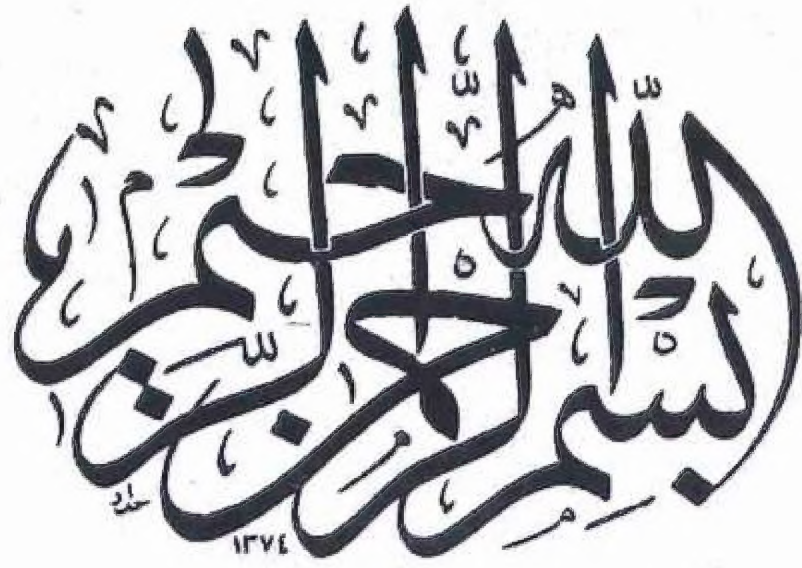 بِسْمِ اللّٰهِ الرَّحْمٰنِ الرَّحِيمِ
حداد
١٣٧٤